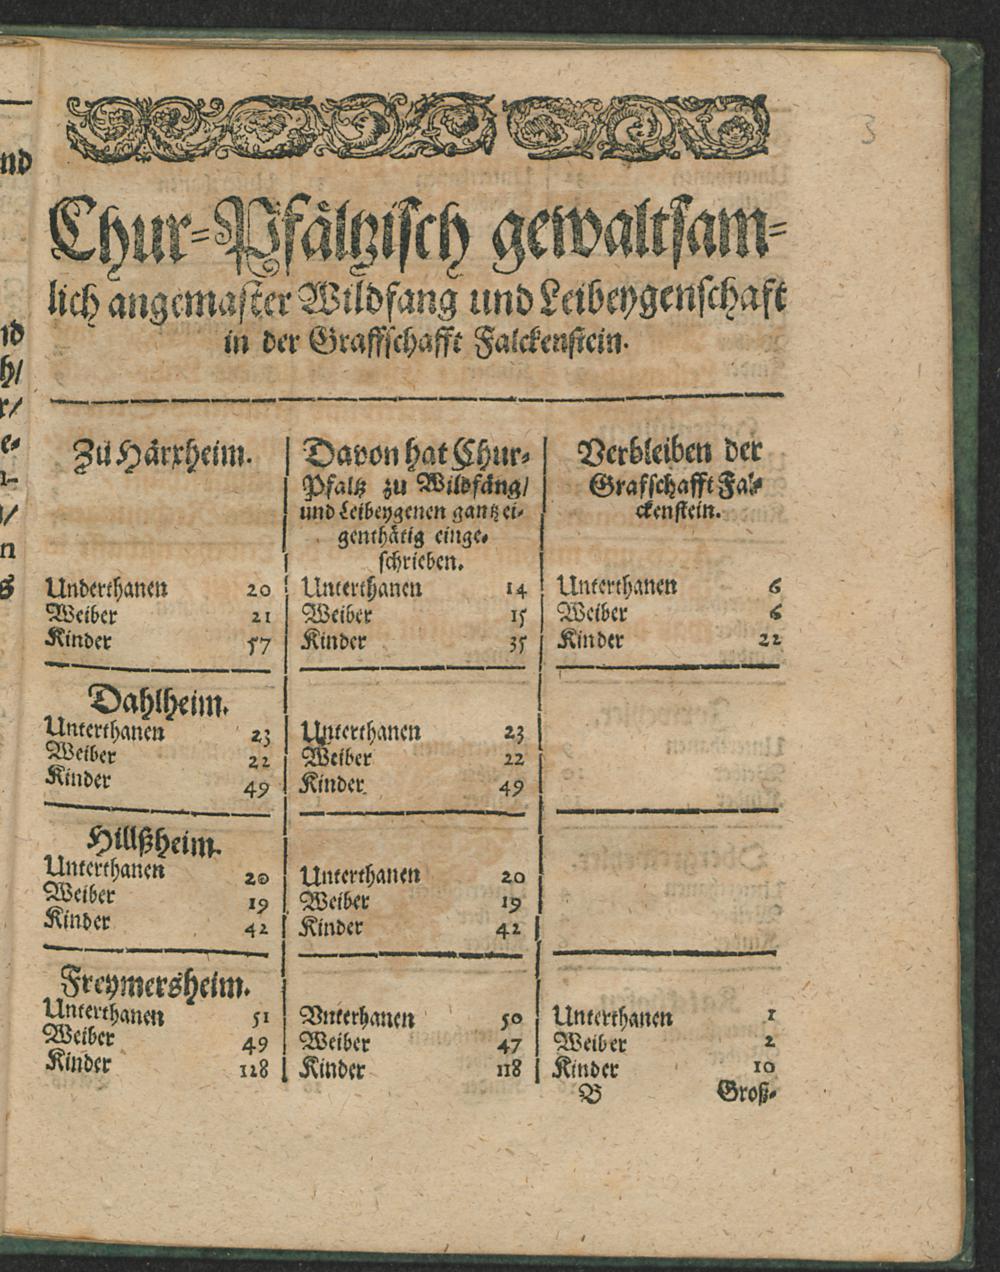 3
Chur-Pfältzisch gewaltsam-
lich angemaster Wildfang und Leibeygenschaft
in der Graffschafft Falckenstein.
Zu Härxheim.
Underthanen 20
Weiber 21
Kinder 57
Davon hat Chur-
Pfaltz zu Wildfäng/
und Leibeygenen gantz ei-
genthätig einge-
schrieben.
Unterthanen 14
Weiber 15
Kinder 35
Verbleiben der
Grafschafft Fal-
ckenstein.
Unterthanen 6
Weiber 6
Kinder 22
Dahlheim.
Unterthanen 23
Weiber 22
Kinder 49
Unterthanen 23
Weiber 22
Kinder 49
Hillßheim.
Unterthanen 20
Weiber 19
Kinder 42
Unterthanen 20
Weiber 19
Kinder 42
Freymersheim.
Unterthanen 51
Weiber 49
Kinder 128
Vnterhanen 50
Weiber 47
Kinder 118
Unterthanen 1
Weiber 2
Kinder 10
B Groß-